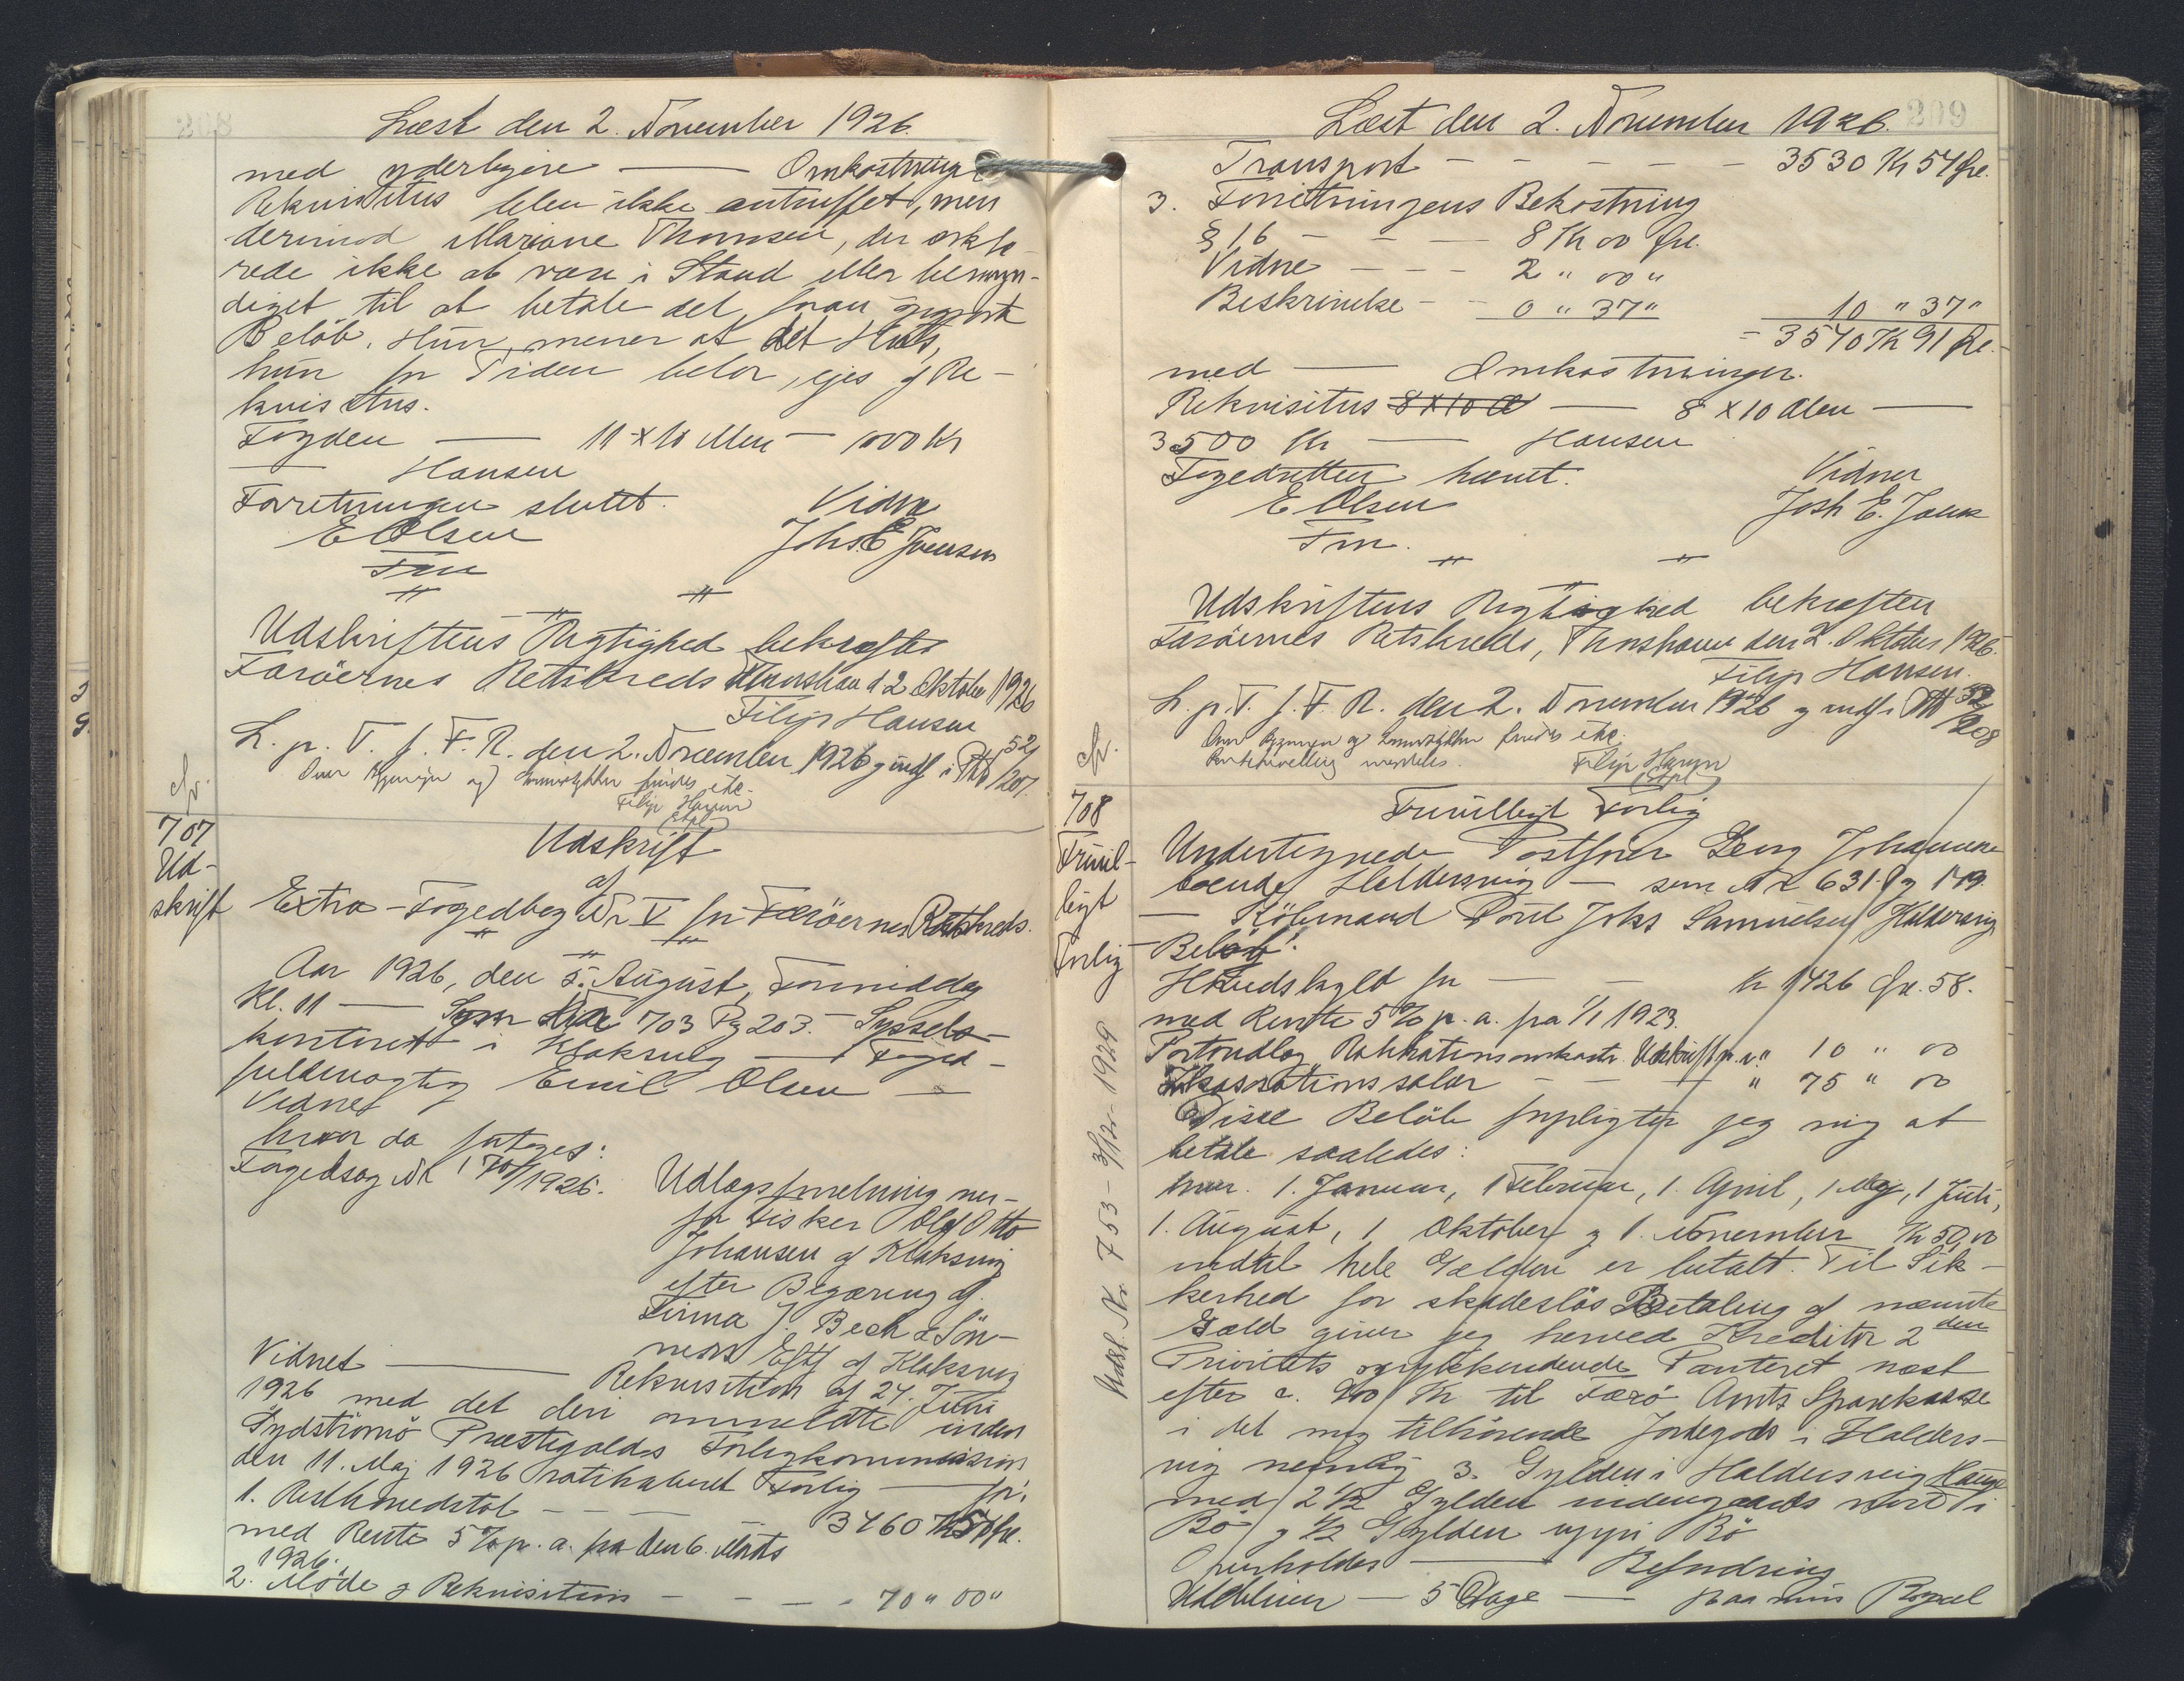 208
Læst den 2. November 1926.
med yderligere — Omkostninger
Rekvisitus blev ikke antruffet, men
derimod Mariane Thomsen, der erklæ-
rede ikke at være i Stand eller bemyn-
diget til at betale det foran
Beløb. Hun mener at det Hus,
hun for Tiden bebor, ejes af Re-
kvisitus.
Fogden — 11 × 10 Alen — 1000 Kr
— Hansen
Forretningen sluttet.
Vidne
E Olsen
Johs. E Joensen
Fm
Udskriftens Rigtighed bekræftes
Færöernes Retskreds Thorshavn d 2 Oktober 1926
Filip Hansen
L. p. T. f. F. R. den 2. November 1926 og indf i Ptb 52/207.
Over Bygningen og findes ikke.
Filip Hansen
cfr.
707
Ud-
skrift
Udskrift
af
Extra-Fogedbog Nr V for Færöernes Retskreds.
Aar 1926, den 5. August, Formiddag
Kl. 11 — Som No 703 Pg 203. — Syssel-
kontoret i Klaksvig — Foged-
fuldmægtig Emil Olsen —
Vidnet
hvor da foretoges:
Fogedsag Nr 170/1926.
Udlægsforretning ner-
for Fisker Olef Otto
Johansen af Klaksvig
efter Begæring af
Firma J. Bech & Søn-
ners Eftf af Klaksvig
Vidnet — Rekvisition af 27. Juni
1926 med det deri ommeldte inden
Sydströmö Præstegælds Forligkommission
den 11. Maj 1926 ratihaberet Forlig — for:
1. Resthovedstol — — 3460 Kr 54 Øre.
med Rente 5 % p. a. fra den 6. Marts
1926.
2. Møde & Rekvisition — — — 70 " 00 "
209
Læst den 2. November 1926.
Transport — — — — — — 3530 Kr 54 Øre.
3. Forretningens Bekostning
§ 16 — — — 8 Kr 00 Øre.
Vidne — — — 2 " 00 "
Beskrivelse — — 0 " 37 " 10 " 37 "
= 3540 Kr 91 Øre.
med — Omkostninger.
Rekvisitus 8 × 10 A — 8 × 10 Alen —
3500 Kr — Hansen
Fogedretten hævet.
Vidner
E Olsen
Josh E. Joens
Fm.
Udskriftens Rigtighed bekræftes
Færöernes Retskreds, Thorshavn den 2. Oktober 1926.
Filip Hansen.
L. p. T. f. F. R. den 2. November 1926 og indf i Ptb 52/208
Over Bygningen og findes ikke.
Filip Hansen
cfr.
708
Frivil-
ligt
Forlig
Frivilligt Forlig
Undertegnede Postfører Georg Johannesen
boende Haldersvig — som No 631 Pg 179.
— Købmand Poul Johs Samuelsen Haldersvig
— Beløb:
Hovedskyld for — — Kr 1426 Øre. 58.
med Rente 5 % p. a. fra 1/1 1923.
Portoudlæg, Ratihabitionsomkostn. Udskrift m. v. " 10 " 00
Inkassationssalær — — — " 75 " 00
Disse Beløb forpligter jeg mig at
betale saaledes:
hver. 1. Januar, 1 Februar, 1. April, 1 Maj, 1 Juli,
1. August, 1 Oktober og 1. November Kr 50,00
indtil hele Gælden er betalt. Til Sik-
kerhed for skadesløs Betaling af nævnte
Gæld giver jeg herved Kreditor 2den
Prioritets oprykkende Panteret næst
efter c. 400 Kr til Færö Amts Sparekasse
i det mig tilhørende Jordegods i Halders-
vig nemlig 3. Gylden i Haldersvig Hauge
med 2 1/2 Gylden nidengards nord i
Bö og 1/2 Gylden uppi Bö
Opretholder — Befordring
Udebliver — 5 Dage — paa min Bopæl
Udsl. Nr. 753 - 3/12 - 1929